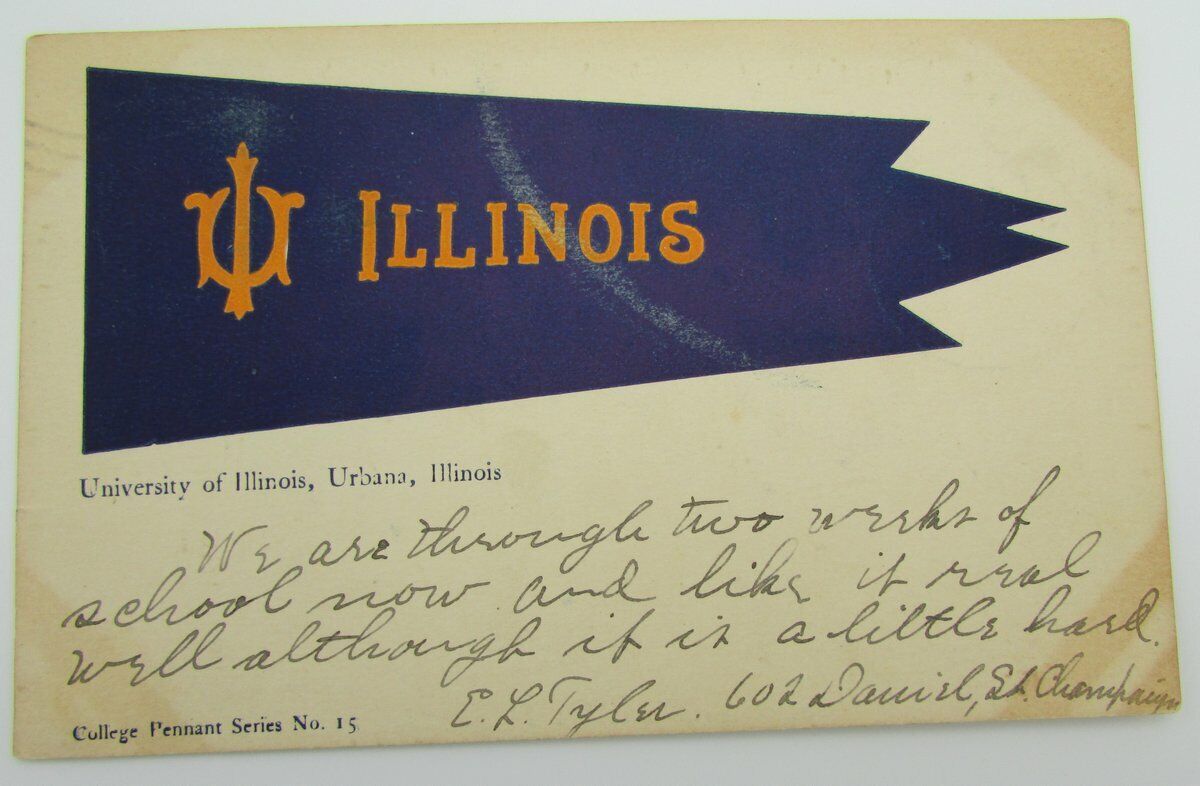 UI ILLINOIS
University of Illinois, Urbana, Illinois
We are through two weeks of
school now and like it real
well although it is a little hard.
E. L. Tyler. 602 Daniel, St. Champaign
College Pennant Series No. 15